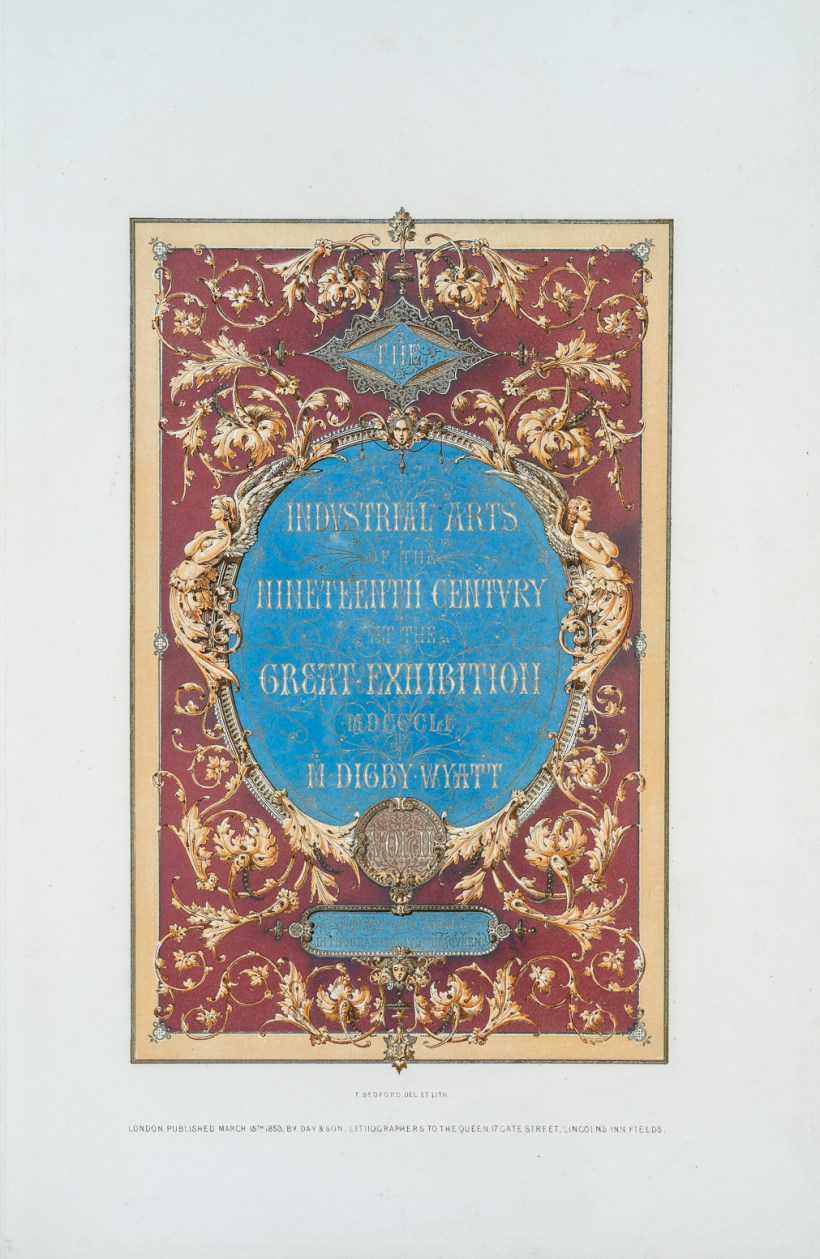 THE
INDVSTRIAL ARTS
OF THE
NINETEENTH CENTVRY
AT THE
GREAT·EXHIBITION
MDCCCLI
BY
M·DIGBY·WYATT
VOL II
LITHOGRAPHERS QUEEN
F. BEDFORD, DEL ET LITH
LONDON, PUBLISHED MARCH 15TH 1853, BY DAY & SON, LITHOGRAPHERS TO THE QUEEN, 17 GATE STREET, LINCOLNS INN FIELDS.